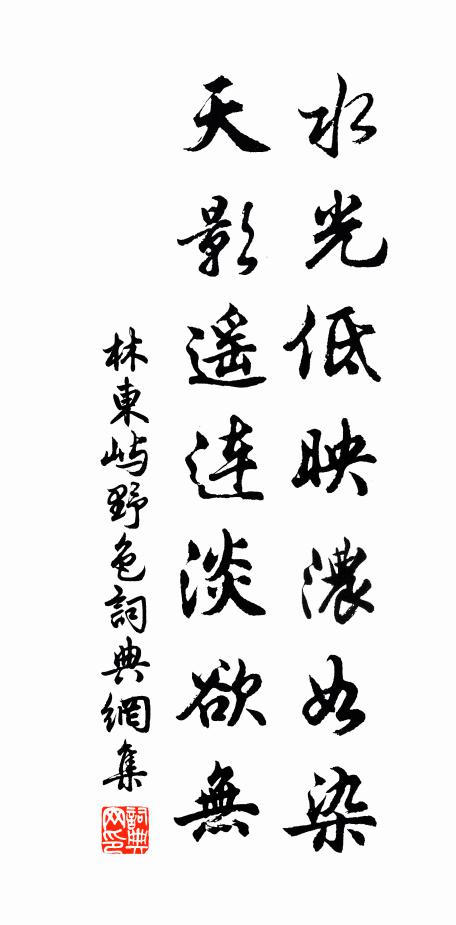 水光低映濃如染
天影遥連淡欲無
林東屿野色詞典網集
詞典網印